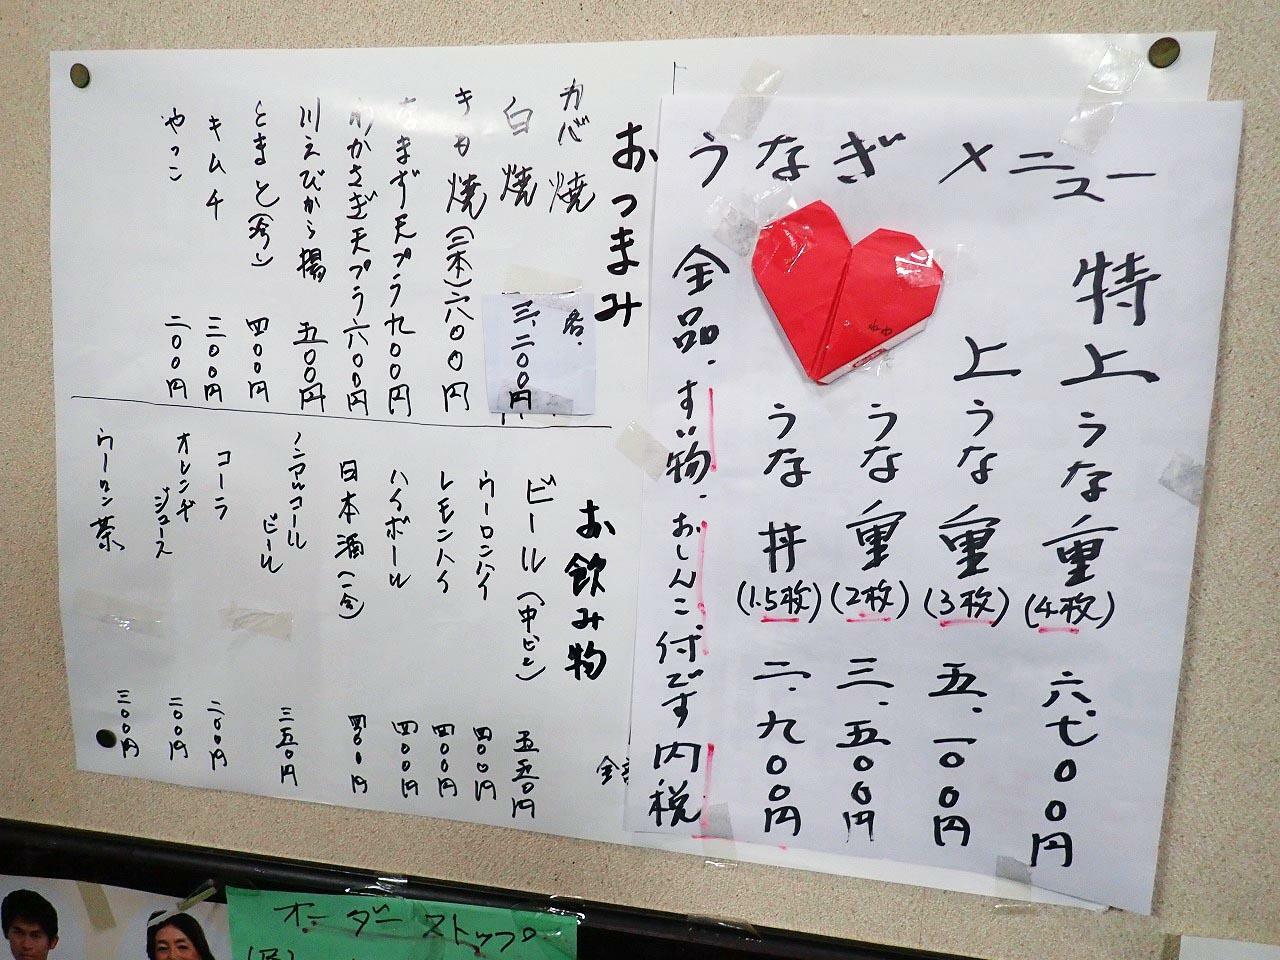 うなぎメニュー
特上うな重(4枚)六、七〇〇円
上うな重(3枚)五、一〇〇円
うな重(2枚)三、五〇〇円
うな丼(1.5枚)二、九〇〇円
全品、すい物、おしんこ付です内税
おつまみ
カバ焼
白焼
各、三、二〇〇円
きも焼(三本)六〇〇円
なまず天プラ九〇〇円
わかさぎ天プラ六〇〇円
川えびから揚五〇〇円
とまと 四〇〇円
キムチ 三〇〇円
やっこ 二〇〇円
お飲み物
ビール(中ビン)五五〇円
ウーロンハイ 四〇〇円
レモンハイ 四〇〇円
ハイボール 四〇〇円
日本酒(一合)四〇〇円
ノンアルコールビール 三五〇円
コーラ 二〇〇円
オレンヂジュース 二〇〇円
ウーロン茶 三〇〇円
オーダーストップ